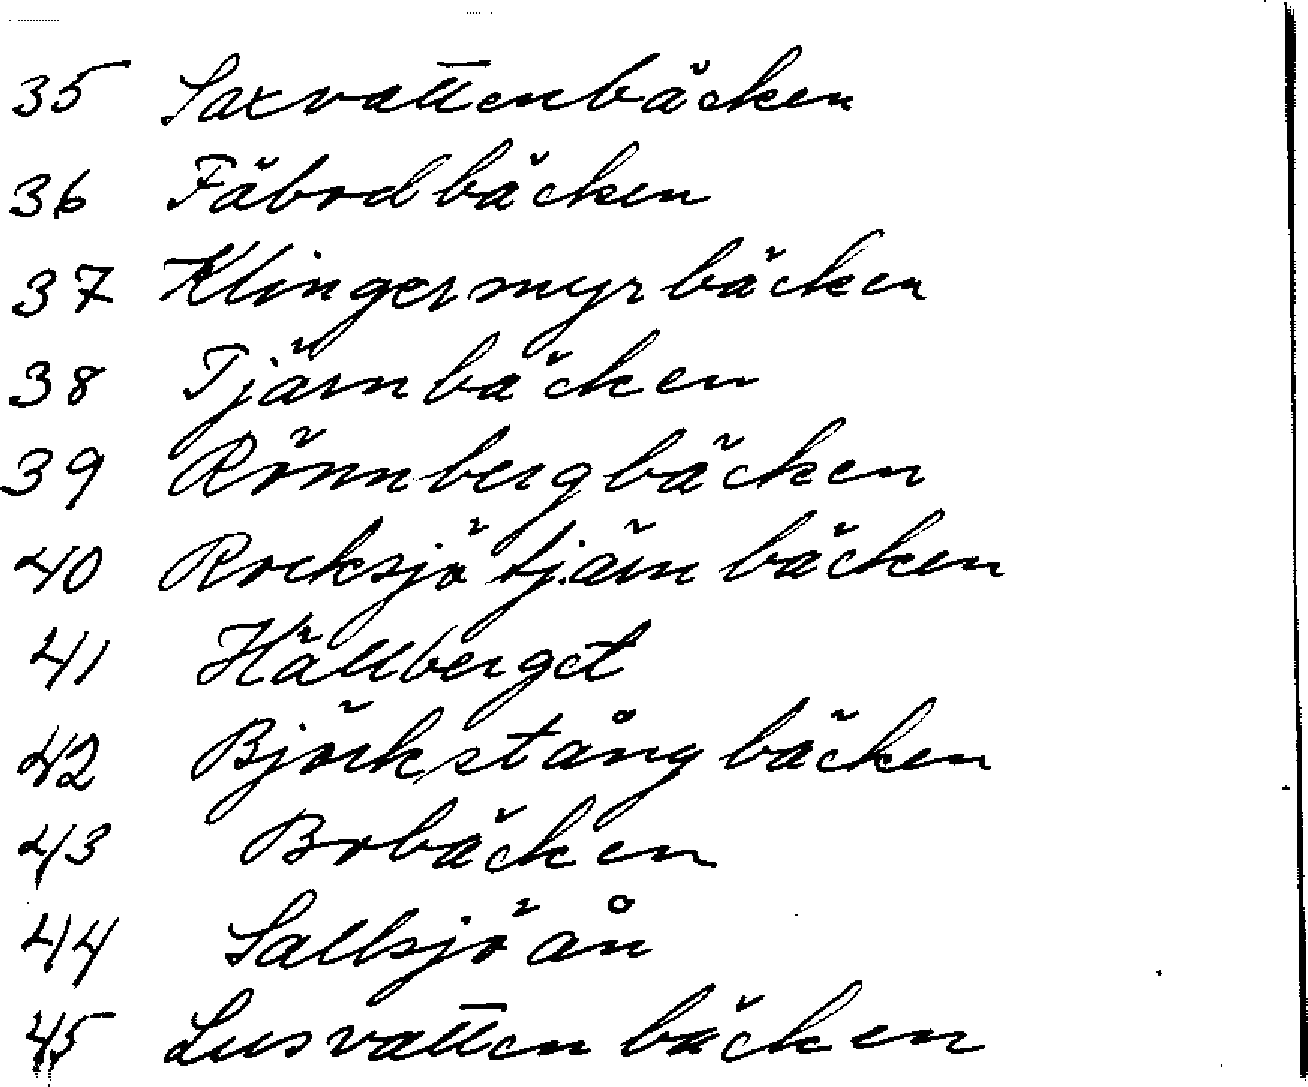 35 Saxvattenbäcken
36 Fäbodbäcken
37 Klingermyrbäcken
38 Tjärnbäcken
39 Rönnbergbäcken
40 Rocksjötjärnbäcken
41 Hällberget
42 Björkstångbäcken
43 Bobäcken
44 Sallsjöån
45 Lusvattenbäcken